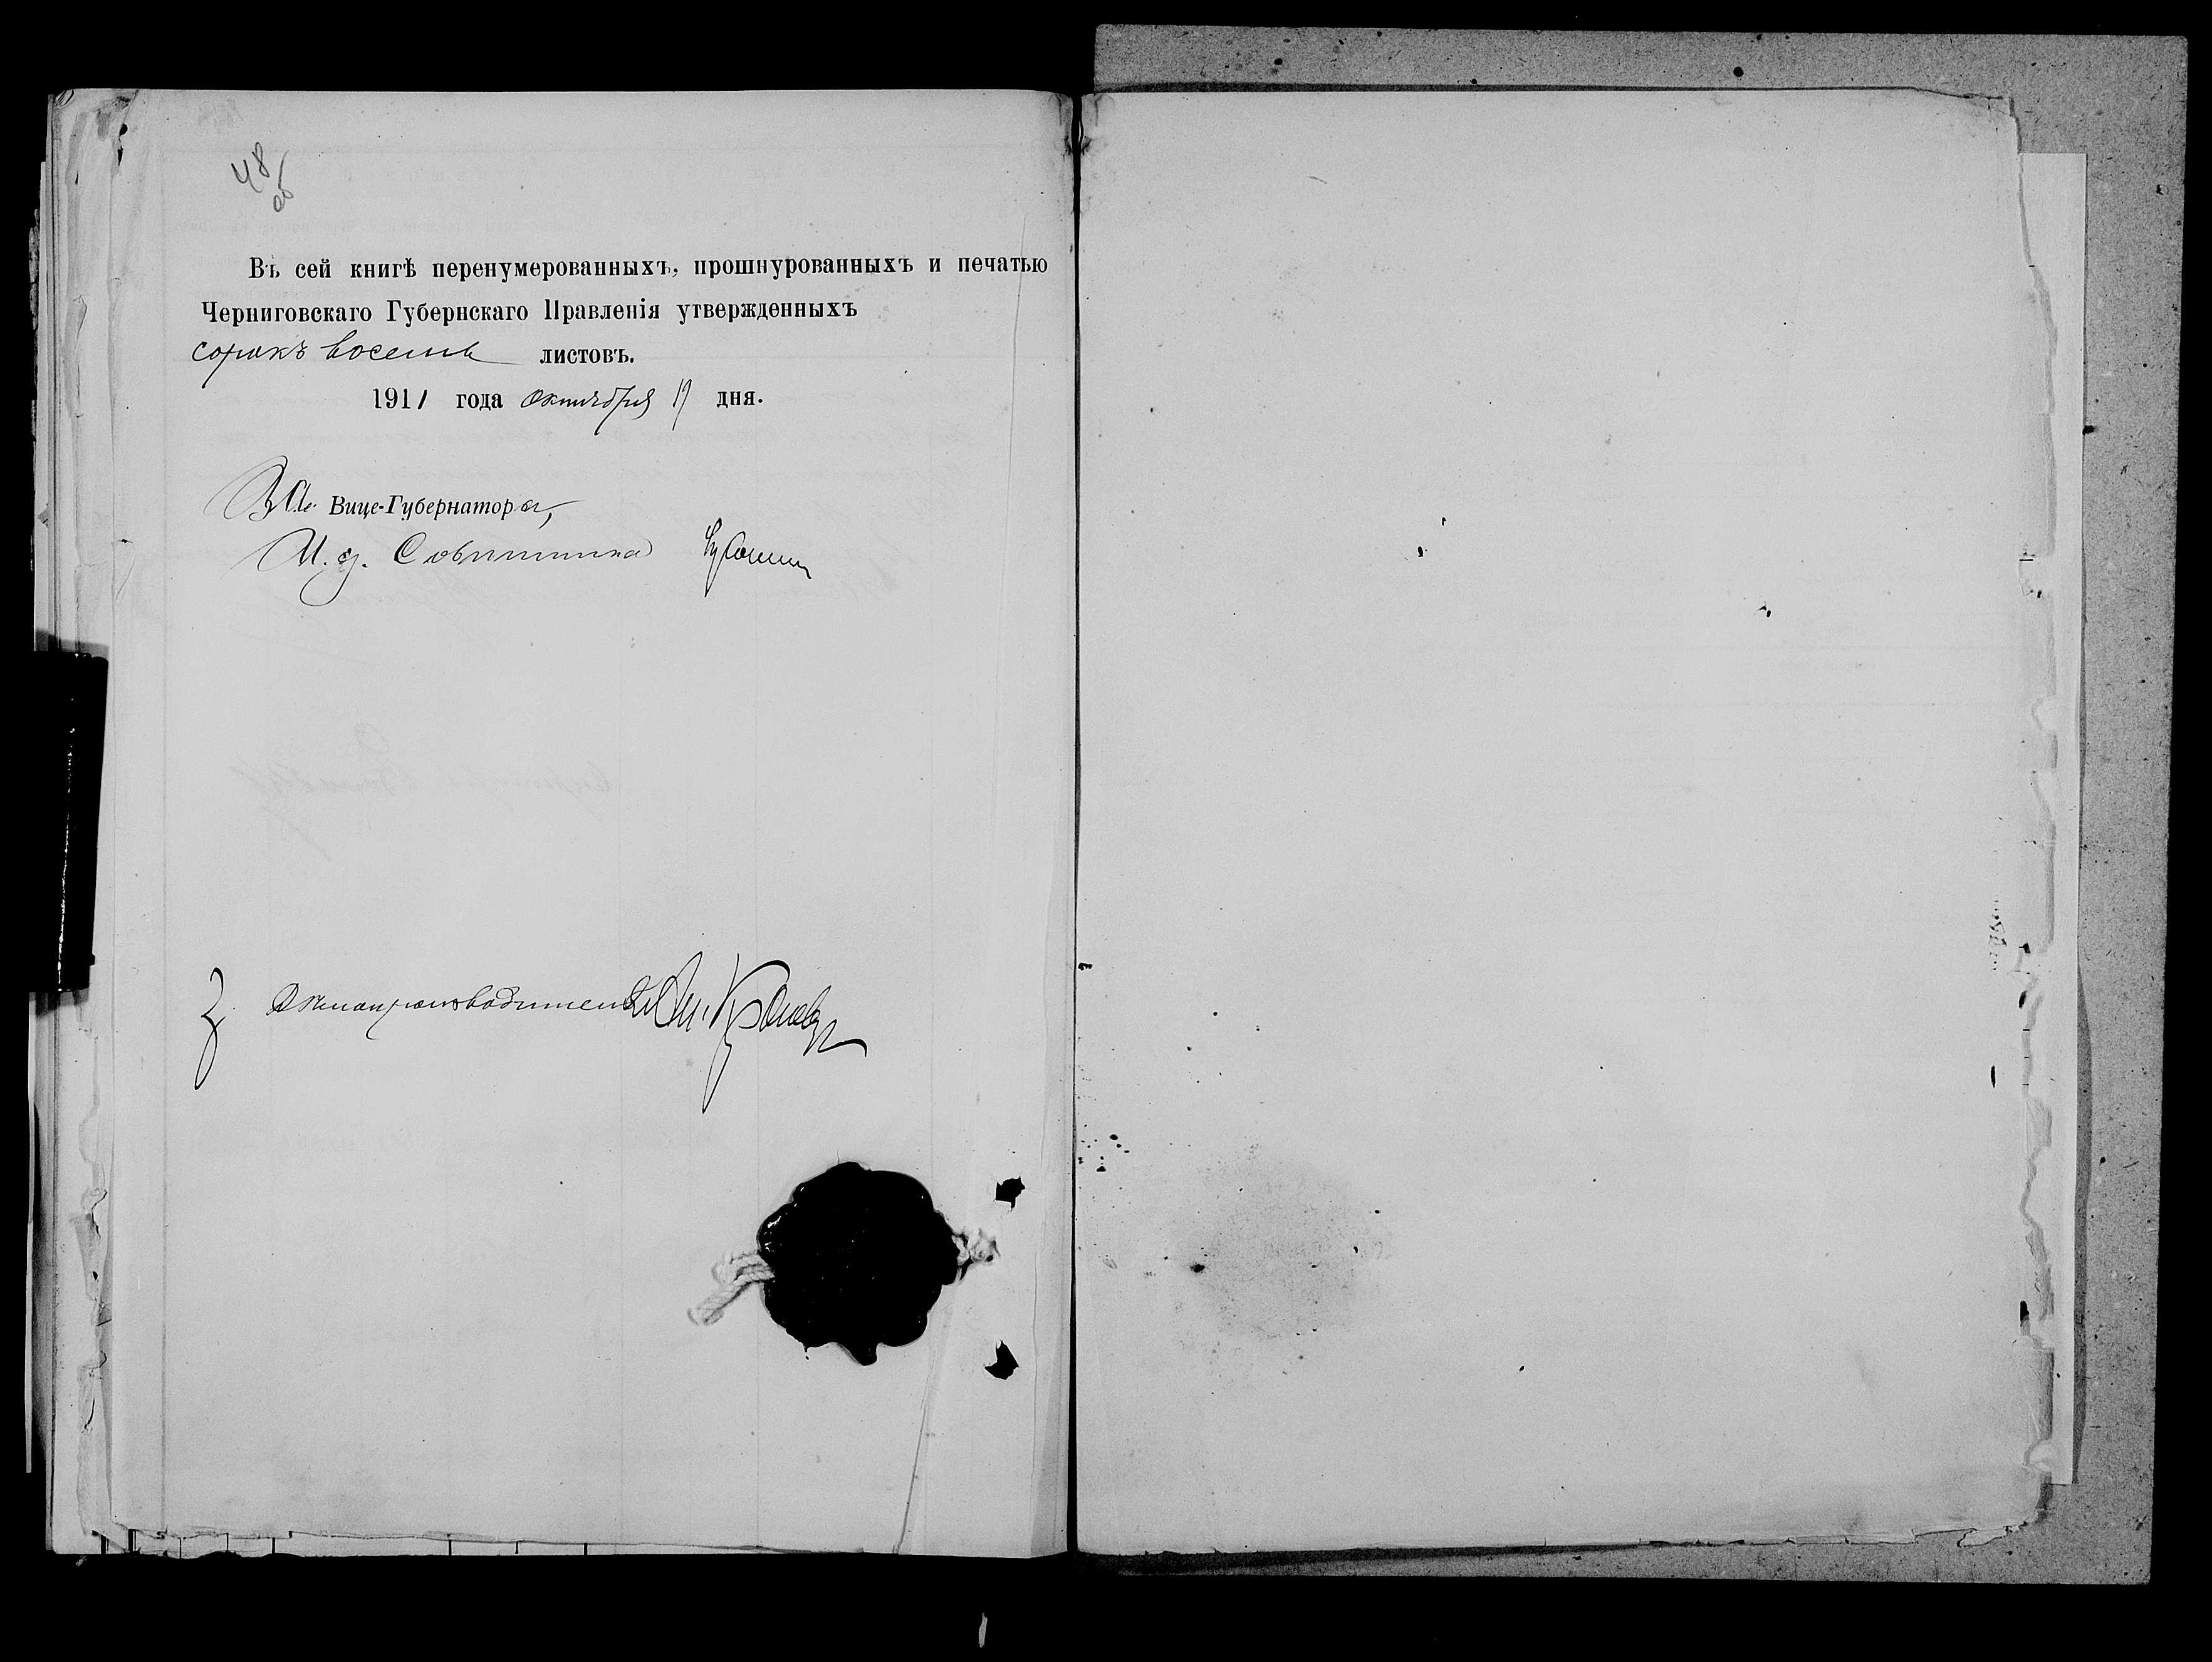 48
об
Въ сей книгѣ перенумерованныхъ, прошнурованныхъ и печатью
Черниговскаго Губернскаго Правленія утвержденныхъ
сорокъ восемь листовъ.
1911 года Октября 19 дня.
За Вице-Губернатора,
И. д. Совѣтника
Дѣлопроизводителя